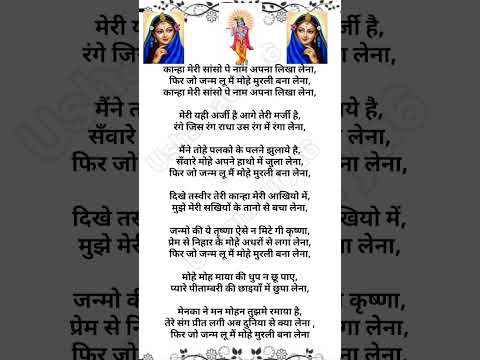 कान्हा मेरी सांसो पे नाम अपना लिखा लेना,
फिर जो जन्म लू मैं मोहे मुरली बना लेना,
कान्हा मेरी सांसो पे नाम अपना लिखा लेना,
मेरी यही अर्जी है आगे तेरी मर्जी है,
रंगे जिस रंग राधा उस रंग में रंगा लेना,
मैंने तोहे पलको के पलने झुलाये है,
सँवारे मोहे अपने हाथो में जुला लेना,
फिर जो जन्म लू मैं मोहे मुरली बना लेना,
दिखे तस्वीर तेरी कान्हा मेरी आखियो में,
मुझे मेरी सखियों के तानो से बचा लेना,
जन्मो की ये तृष्णा ऐसे न मिटे गी कृष्णा,
प्रेम से निहार के मोहे अधरों से लगा लेना,
फिर जो जन्म लू मैं मोहे मुरली बना लेना,
मोहे मोह माया की धुप न छू पाए,
प्यारे पीताम्बरी की छाइयाँ में छुपा लेना,
मेनका ने मन मोहन तुझमे रमाया है,
तेरे संग प्रीत लगी अब दुनिया से क्या लेना ,
फिर जो जन्म लू मैं मोहे मुरली बना लेना